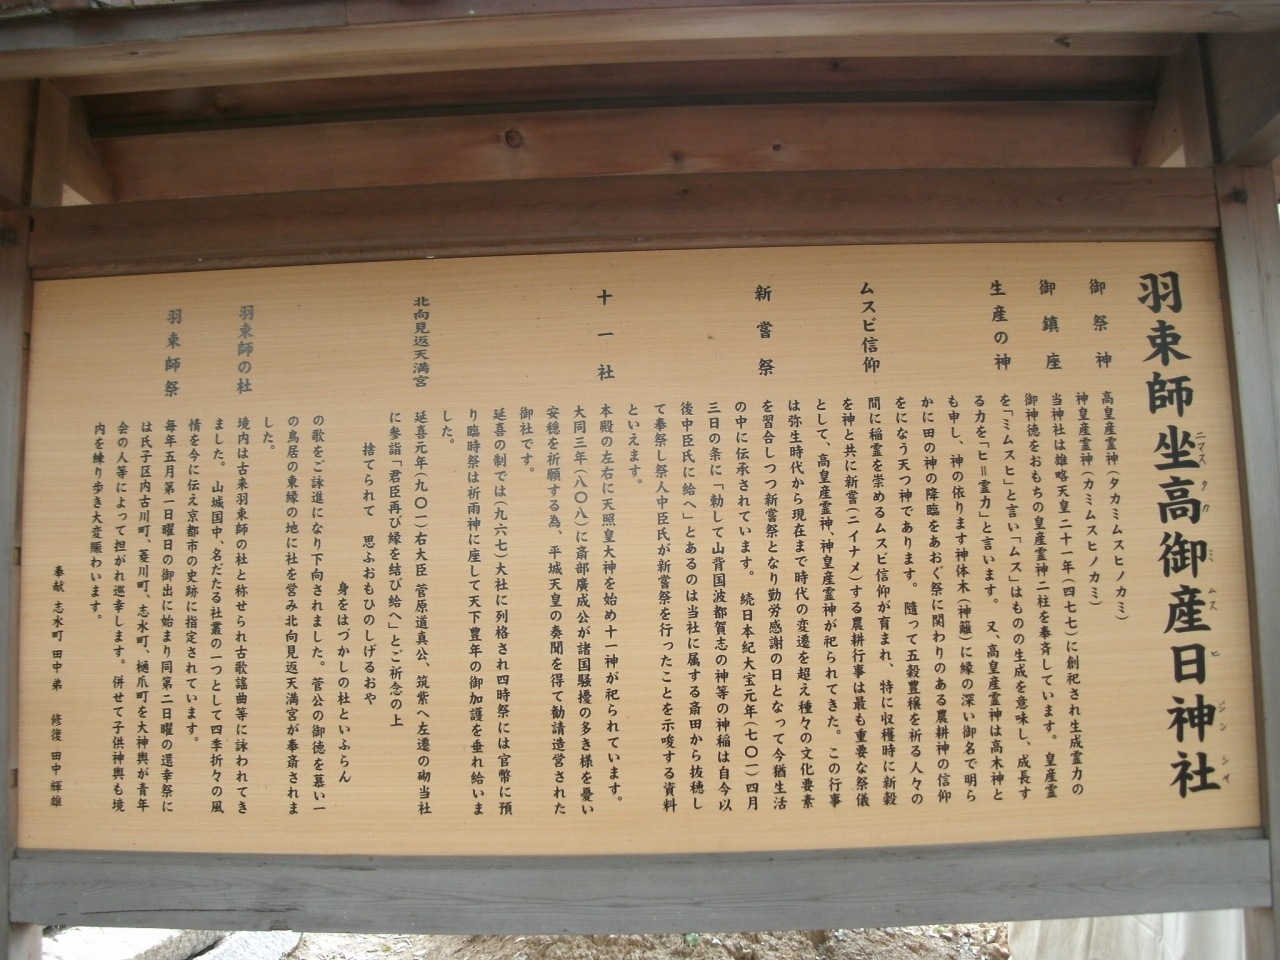 羽束師坐高御産日神社
ニマス タカ ミ ムス ヒ ジン シヤ
御祭神
高皇産霊神(タカミムスヒノカミ)
神皇産霊神(カミムスヒノカミ)
御鎮座
当神社は雄略天皇二十一年(四七七)に創祀され生成霊力の
御神徳をおもちの皇産霊神二柱を奉斉しています。皇産霊
生産の神
を「ミムスヒ」と言い「ムス」はものの生成を意味し、成長す
る力を「ヒ=霊力」と言います。又、高皇産霊神は高木神と
も申し、神の依ります神体木(神籬)に縁の深い御名で明ら
かに田の神の降臨をあおぐ祭に関わりのある農耕神の信仰
をになう天つ神であります。随って五穀豊穣を祈る人々の
ムスビ信仰
間に稲霊を崇めるムスビ信仰が育まれ、特に収穫時に新穀
を神と共に新嘗(ニイナメ)する農耕行事は最も重要な祭儀
として、高皇産霊神、神皇産霊神が祀られてきた。この行事
は弥生時代から現在まで時代の変遷を超え種々の文化要素
新嘗祭
を習合しつつ新嘗祭となり勤労感謝の日となって今猶生活
の中に伝承されています。続日本紀大宝元年(七〇一)四月
三日の条に「勅して山背国波都賀志の神等の神稲は自今以
後中臣氏に給へ」とあるのは当社に属する斎田から抜穂し
て奉祭し祭人中臣氏が新嘗祭を行ったことを示唆する資料
といえます。
十一社
本殿の左右に天照皇大神を始め十一神が祀られています。
大同三年(八〇八)に斎部廣成公が諸国騒擾の多き様を憂い
安穏を祈願する為、平城天皇の奏聞を得て勧請造営された
御社です。
延喜の制では(九六七)大社に列格され四時祭には官幣に預
り臨時祭は祈雨神に座して天下豊年の御加護を垂れ給いま
した。
北向見返天満宮
延喜元年(九〇一)右大臣菅原道真公、筑紫へ左遷の砌当社
に参詣「君臣再び縁を結び給へ」とご祈念の上
捨てられて 思ふおもひのしげるおや
身をはづかしの社といふらん
の歌をご詠進になり下向されました。菅公の御徳を慕い一
の鳥居の東縁の地に社を営み北向見返天満宮が奉斎されま
した。
羽束師の社
境内は古来羽束師の社と称せられ古歌謡曲等に詠われてき
ました。山城国中、名だたる社叢の一つとして四季折々の風
情を今に伝え京都市の史跡に指定されています。
羽束師祭
毎年五月第一日曜日の御出に始まり同第二日曜の還幸祭に
は氏子区内古川町、菱川町、志水町、樋爪町を大神輿が青年
会の人等によって担がれ巡幸します。併せて子供神輿も境
内を練り歩き大変賑わいます。
奉献 志水町 田中弟 修復 田中輝雄